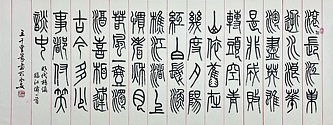 滾滾長江東
逝水浪花
淘盡英雄
是非成敗
轉頭空青
山依舊在
幾度夕陽
紅白髮漁
樵江渚上
慣看秋月
春風一壺
濁酒喜相逢
古今多少
事都付笑
談中
明代楊慎
臨江仙一首